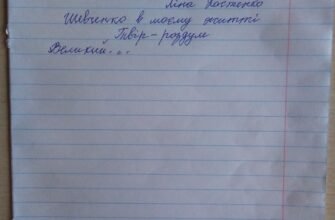 Ліна Костенко
Шевченко в моєму житті
Твір-роздум
Великий...